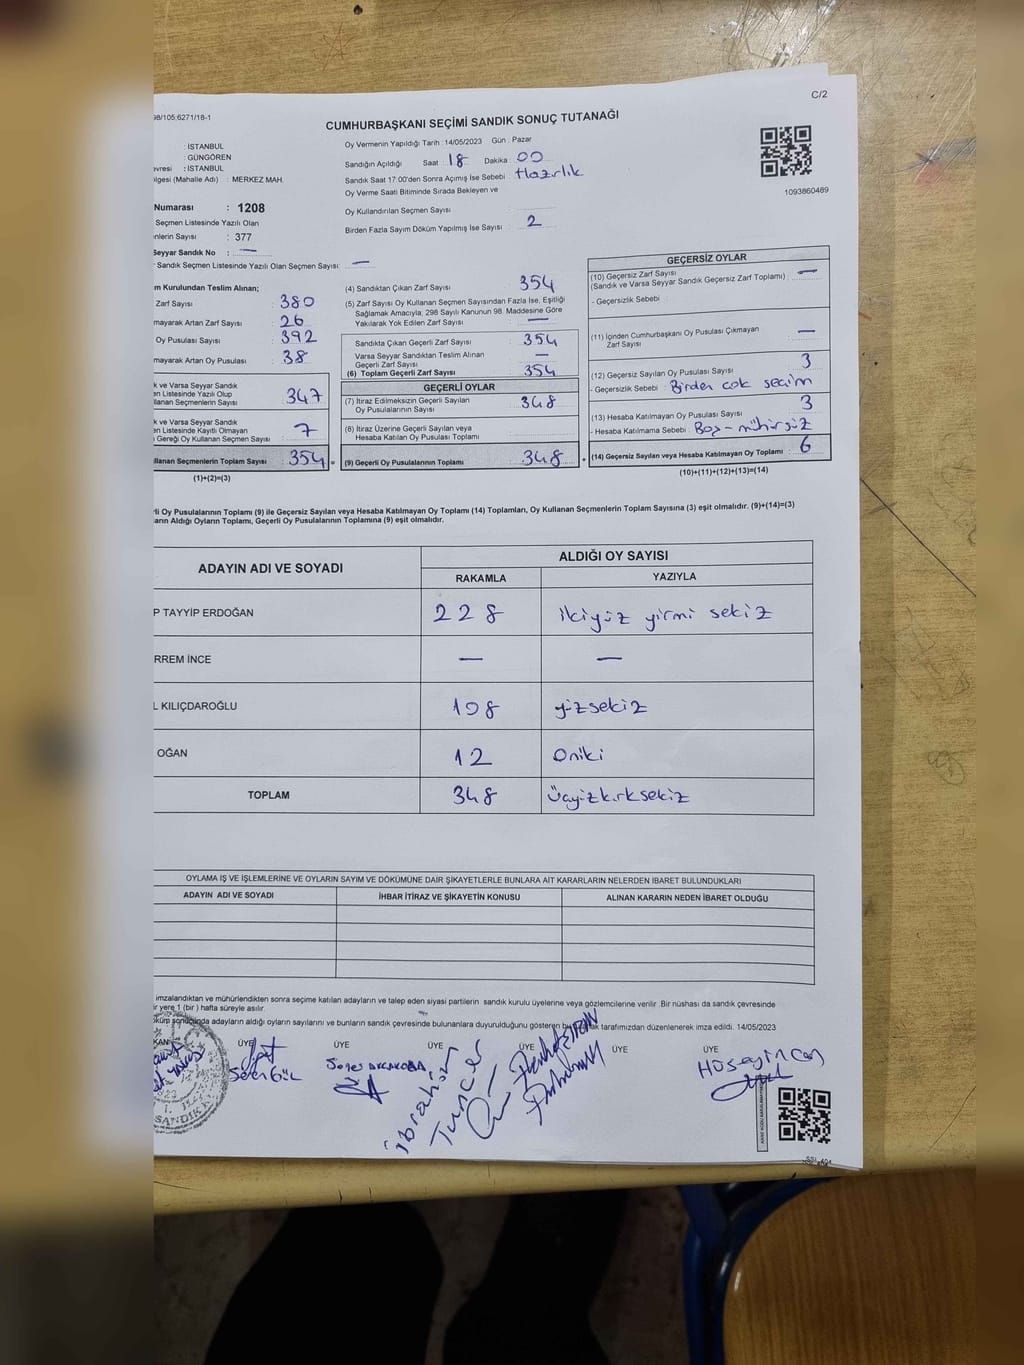 C/2
98/105.6271/18-1
CUMHURBAŞKANI SEÇİMİ SANDIK SONUÇ TUTANAĞI
: İSTANBUL
: GÜNGÖREN
evresi : İSTANBUL
lgesi (Mahalle Adı) : MERKEZ MAH.
Oy Vermenin Yapıldığı Tarih : 14/05/2023 Gün : Pazar
Sandığın Açıldığı Saat : 18 Dakika : 00
Sandık Saat 17:00'den Sonra Açımış İse Sebebi : Hazırlık
Oy Verme Saati Bitiminde Sırada Bekleyen ve
Oy Kullandırılan Seçmen Sayısı
Birden Fazla Sayım Döküm Yapılmış İse Sayısı : 2
1093860489
Numarası : 1208
Seçmen Listesinde Yazılı Olan
enlerin Sayısı : 377
Seyyar Sandık No : —
Sandık Seçmen Listesinde Yazılı Olan Seçmen Sayısı: —
m Kurulundan Teslim Alınan;
Zarf Sayısı : 380
mayarak Artan Zarf Sayısı : 26
Oy Pusulası Sayısı : 392
mayarak Artan Oy Pusulası : 38
k ve Varsa Seyyar Sandık
en Listesinde Yazılı Olup
llanan Seçmenlerin Sayısı 347
k ve Varsa Seyyar Sandık
en Listesinde Kayıtlı Olmayan
Gereği Oy Kullanan Seçmen Sayısı 7
llanan Seçmenlerin Toplam Sayısı 354
(1)+(2)=(3)
(4) Sandıktan Çıkan Zarf Sayısı : 354
(5) Zarf Sayısı Oy Kullanan Seçmen Sayısından Fazla İse, Eşitliği
Sağlamak Amacıyla; 298 Sayılı Kanunun 98. Maddesine Göre
Yakılarak Yok Edilen Zarf Sayısı : —
Sandıkta Çıkan Geçerli Zarf Sayısı : 354
Varsa Seyyar Sandıktan Teslim Alınan
Geçerli Zarf Sayısı : —
(6) Toplam Geçerli Zarf Sayısı : 354
GEÇERLİ OYLAR
(7) İtiraz Edilmeksizin Geçerli Sayılan
Oy Pusulalarının Sayısı : 348
(8) İtiraz Üzerine Geçerli Sayılan veya
Hesaba Katılan Oy Pusulası Toplamı
= (9) Geçerli Oy Pusulalarının Toplamı 348 +
GEÇERSİZ OYLAR
(10) Geçersiz Zarf Sayısı
(Sandık ve Varsa Seyyar Sandık Geçersiz Zarf Toplamı) : —
- Geçersizlik Sebebi :
(11) İçinden Cumhurbaşkanı Oy Pusulası Çıkmayan
Zarf Sayısı : —
(12) Geçersiz Sayılan Oy Pusulası Sayısı : 3
- Geçersizlik Sebebi : Birden cok secim
(13) Hesaba Katılmayan Oy Pusulası Sayısı : 3
- Hesaba Katılmama Sebebi : Boş-mühürsüz
(14) Geçersiz Sayılan veya Hesaba Katılmayan Oy Toplamı : 6
(10)+(11)+(12)+(13)=(14)
rli Oy Pusulalarının Toplamı (9) ile Geçersiz Sayılan veya Hesaba Katılmayan Oy Toplamı (14) Toplamları, Oy Kullanan Seçmenlerin Toplam Sayısına (3) eşit olmalıdır. (9)+(14)=(3)
arın Aldığı Oyların Toplamı, Geçerli Oy Pusulalarının Toplamına (9) eşit olmalıdır.
ADAYIN ADI VE SOYADI ALDIĞI OY SAYISI
RAKAMLA YAZIYLA
P TAYYİP ERDOĞAN 228 ikiyüz yirmi sekiz
RREM İNCE — —
L KILIÇDAROĞLU 108 yüzsekiz
OĞAN 12 Oniki
TOPLAM 348 Üçyüzkırksekiz
OYLAMA İŞ VE İŞLEMLERİNE VE OYLARIN SAYIM VE DÖKÜMÜNE DAİR ŞİKAYETLERLE BUNLARA AİT KARARLARIN NELERDEN İBARET BULUNDUKLARI
ADAYIN ADI VE SOYADI İHBAR İTİRAZ VE ŞİKAYETİN KONUSU ALINAN KARARIN NEDEN İBARET OLDUĞU
imzalandıktan ve mühürlendikten sonra seçime katılan adayların ve talep eden siyasi partilerin sandık kurulu üyelerine veya gözlemcilerine verilir. Bir nüshası da sandık çevresinde
ir yere 1 (bir) hafta süreyle asılır.
küm sonucunda adayların aldığı oyların sayılarını ve bunların sandık çevresinde bulunanlara duyurulduğunu gösteren bu tarafımızdan düzenlenerek imza edildi. 14/05/2023
KAN ÜYE ÜYE ÜYE ÜYE ÜYE ÜYE
İbrahim
Tuncer
Hüseyin Can
SANDIK